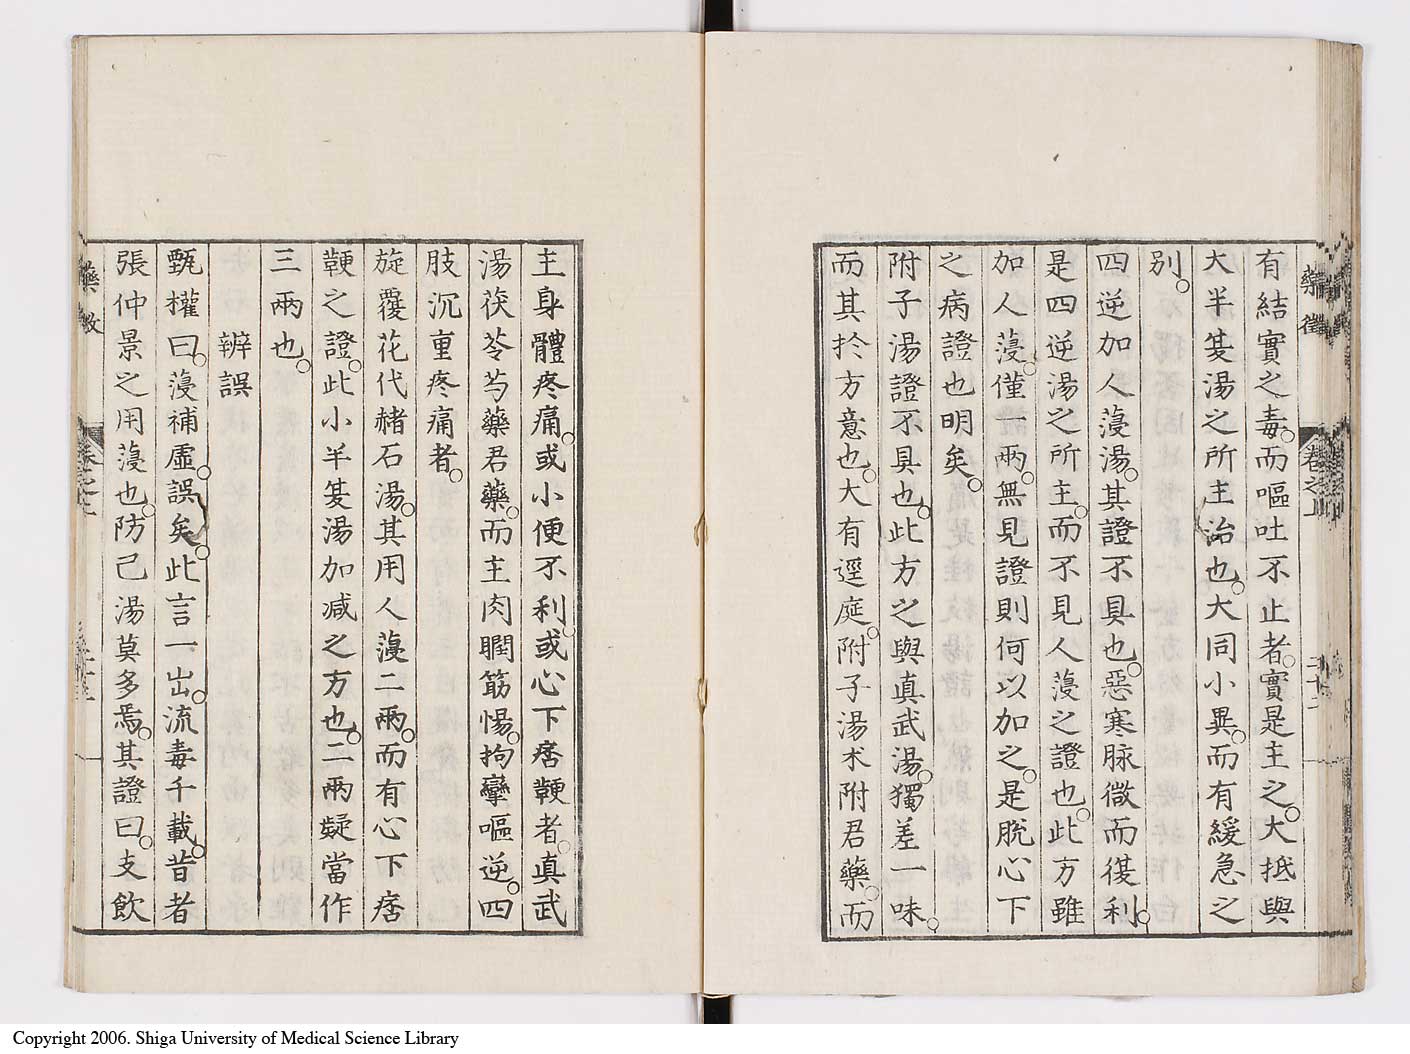 藥徴
卷之上
二十二
有結實之毒。而嘔吐不止者。實是主之。大抵與
大半夏湯之所主治也。大同小異。而有緩急之
別。
四逆加人薓湯。其證不具也。惡寒脉微而復利。
是四逆湯之所主。而不見人薓之證也。此方雖
加人薓。僅一兩。無見證則何以加之。是脫心下
之病證也明矣。
附子湯證不具也。此方之與真武湯。獨差一味。
而其於方意也。大有逕庭。附子湯术附君藥。而
主身體疼痛。或小便不利。或心下痞鞕者。真武
湯茯苓芍藥君藥。而主肉瞤筋惕。拘攣嘔逆。四
肢沉重疼痛者。
旋覆花代赭石湯。其用人薓二兩。而有心下痞
鞕之證。此小半夏湯加減之方也。二兩疑當作
三兩也。
辨誤
甄權曰。薓補虛。誤矣。此言一出。流毒千載。昔者
張仲景之用薓也。防己湯莫多焉。其證曰。支飲
Copyright 2006. Shiga University of Medical Science Library